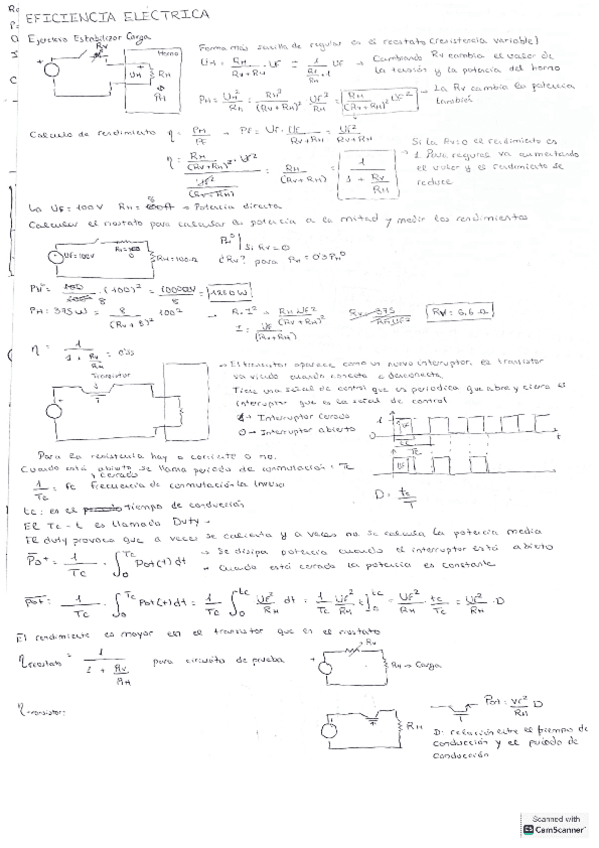 EFICIENCIA ELECTRICA
Ejercicio Estabilizar Carga
Rv
Horno
UH
RH
PH
Forma más sencilla de regular es el reostato (resistencia variable)
UH = RH / (Rv + RH) · UF = 1 / (Rv/RH + 1) UF → Cambiando Rv cambia el valor de
la tensión y la potencia del horno
PH = UH² / RH = RH² / (Rv+RH)² · UF² / RH = RH / (Rv+RH)² UF² → La Rv cambia la potencia
también
Calculo de rendimiento η = PH / PF → PF = UF · UF / (Rv+RH) = UF² / (Rv+RH)
η = RH / (Rv+RH)² · UF² / UF² / (Rv+RH) = RH / (Rv+RH) = 1 / (1 + Rv/RH)
Si la Rv=0 el rendimiento es
1. Para regular va aumentando
el valor y el rendimiento se
reduce
La UF = 100V RH = 8 → Potencia directa
Calcular el reostato para calcular la potencia a la mitad y medir los rendimientos
UF=100V
RH=100Ω
PH⁰ | si Rv=0
¿Rv? para PH = 0'5 PH⁰
(100)² = 10000V / 8 = 1250W
PH: 375W = 8 / (Rv+8)² 100² → R·I² = RH UF² / (Rv+RH)²
I = UF / (Rv+RH)
Rv = 6,6 Ω
η = 1 / (1 + Rv/RH) = 0'55
Transistor
→ El transistor aparece como un nuevo interruptor, el transistor
va viendo cuando conecta o desconecta.
Tiene una señal de control que es periodica que abre y cierra el
interruptor que es la señal de control
1 → Interruptor Cerrado
0 → Interruptor abierto
Para la resistencia hay o corriente o no.
Cuando está abierto y cerrado se llama periodo de conmutación: Tc
1 / Tc = fc Frecuencia de conmutación la inversa
tc: es el tiempo de conducción
D = tc / T
El Tc - t es llamado Duty.
El duty provoca que a veces se calienta y a veces no se calcula la potencia media
Pot = 1 / Tc · ∫₀^Tc Pot(t) dt → Se disipa potencia cuando el interruptor está abierto
→ Cuando está cerrado la potencia es constante
Pot = 1 / Tc · ∫₀^Tc Pot(t) dt = 1 / Tc ∫₀^tc UF² / RH dt = 1 / Tc UF² / RH t]₀^tc = UF² / RH · tc / Tc = UF² / RH · D
El rendimiento es mayor en el transistor que en el reostato
η reostato = 1 / (1 + Rv/RH) para circuito de prueba
Rv
RH → Carga
η transistor:
RH
T
Pot = VF² / RH D
D: relación entre el tiempo de
conducción y el periodo de
conducción
Scanned with
CS CamScanner